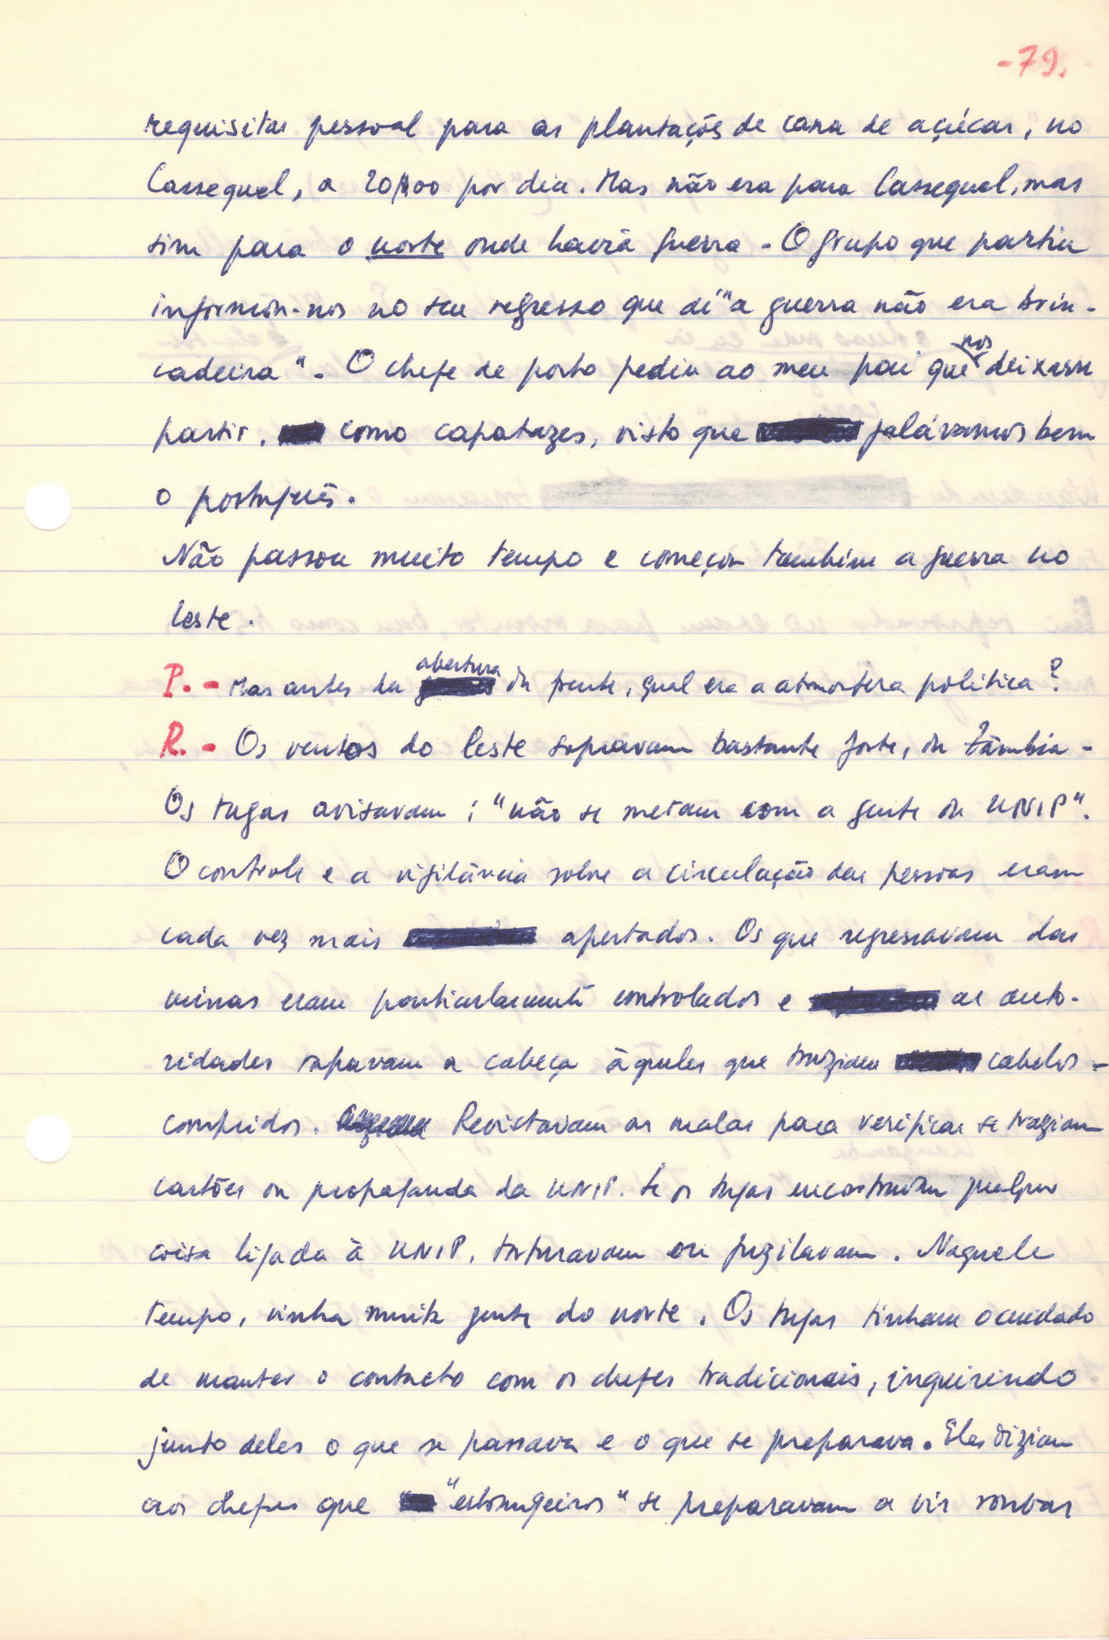 -79.
requisitar pessoal para as plantações de cana de açúcar, no
Cassequel, a 20$00 por dia. Mas não era para Cassequel, mas
sim para o norte onde havia guerra - O grupo que partiu
informou-nos no seu regresso que aí "a guerra não era brin-
cadeira". O chefe de posto pediu ao meu pai que nos deixasse
partir, como capatazes, visto que falávamos bem
o português.
Não passou muito tempo e começou também a guerra no
leste.
P. - Mas antes da abertura da frente, qual era a atmosfera política?
R. - Os ventos do leste sopravam bastante forte, da Zâmbia -
Os tugas avisavam: "não se metam com a gente da UNIP".
O controle e a vigilância sobre a circulação das pessoas eram
cada vez mais apertados. Os que regressavam das
minas eram particularmente controlados e as auto-
ridades rapavam a cabeça àqueles que traziam cabelos -
compridos. Revistavam as malas para verificar se traziam
cartões ou propaganda da UNIP. Se os tugas encontravam qualquer
coisa ligada à UNIP, torturavam ou fuzilavam. Naquele
tempo, vinha muita gente do norte. Os tugas tinham o cuidado
de manter o contacto com os chefes tradicionais, inquirindo
junto deles o que se passava e o que se preparava. Eles diziam
aos chefes que "estrangeiros" se preparavam a vir roubar